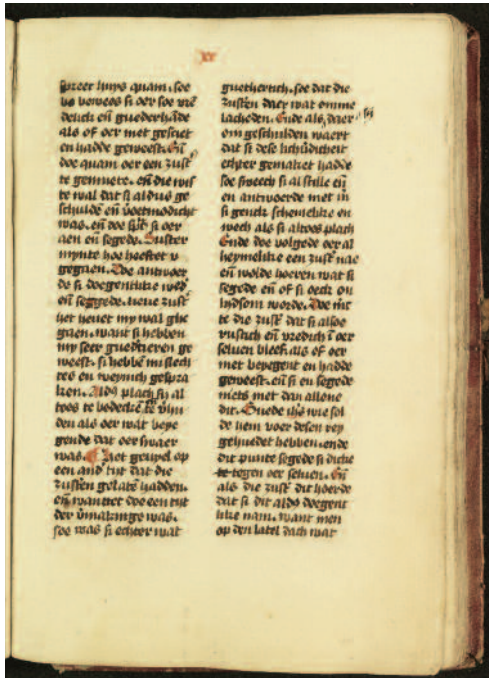 xx
huys quam. soe
si oer soe
delick eñ guederhande
als of oer met gesciet
en hadde geweest. Eñ
doe quam oer een zust
te gemuete. eñ die wis
te wal dat si aldus ge
schulde eñ was. eñ doe si oer
aen eñ segede. Suster
mynte hoe heeftet v
gegaen. Doe antwoer
de si doegentlike wed
eñ seggede. neue zust
het heuet my wal ghe
gaen. want si hebben
my seer guedtieren ge
weest. si hebbē mi slech
tes en weynich gespra
ken. Aldꝰ plach sij al
toes te bedecke
den als oer wat beye
gende dat oer swaer
was. Het geuyel op
een and tijt dat die
zusteren gelatē hadden.
eñ wantet doe een tijt
der was.
soe was si echter wat
guetherlich. soe dat die
zusten daer wat omme
lacheden. Ende als daer si
om geschulden waert
dat si dese lichtūdicheit
echter gemaket hadde
soe sweech si al stille eñ
en antwoerde met m
si genck schemelike en
wech als si altoes plach
Ende doe volgede oer al
heymelike een zust nae
eñ wolde hoeren wat si
segede eñ of si oeck on
lydsom worde. Doe
te die zust dat si alsoe
rustich eñ vredich ī oer
seluen bleef. als of oer
met beyegent en hadde
geweest. eñ si en segede
mets met dan allene
dit. Guede ihs wie sol
de hem voer desen rey
gehuedet hebben. ende
dit punte segede si dicke
te tegen oer seluen. Eñ
als die zust dit hoerde
dat si dit aldꝰ doegent
like nam. want men
op den latel dach wat